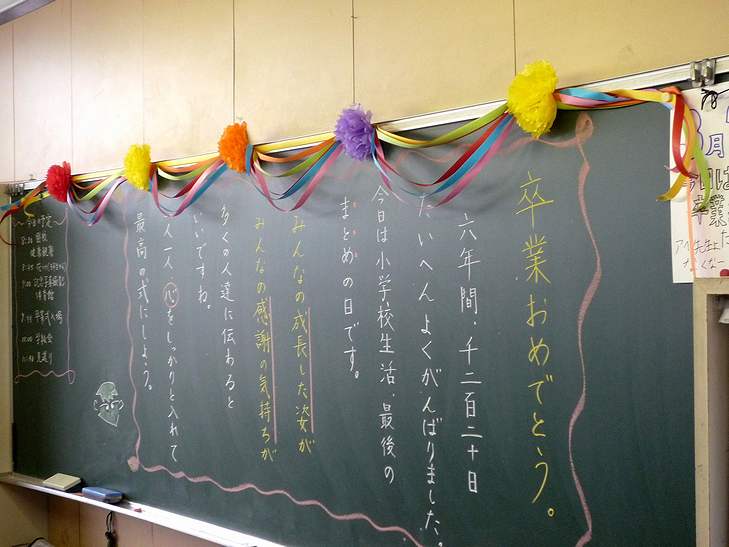 卒業おめでとう。
六年間・千二百二十日
たいへんよくがんばりました。
今日は小学校生活、最後の
まとめの日です。
みんなの成長した姿が
みんなの感謝の気持ちが
多くの人達に伝わると
いいですね。
一人一人心をしっかりと入れて
最高の式にしよう。
登校
健康観察
体育館
卒業式入場
学級会
見送り
3月
卒業